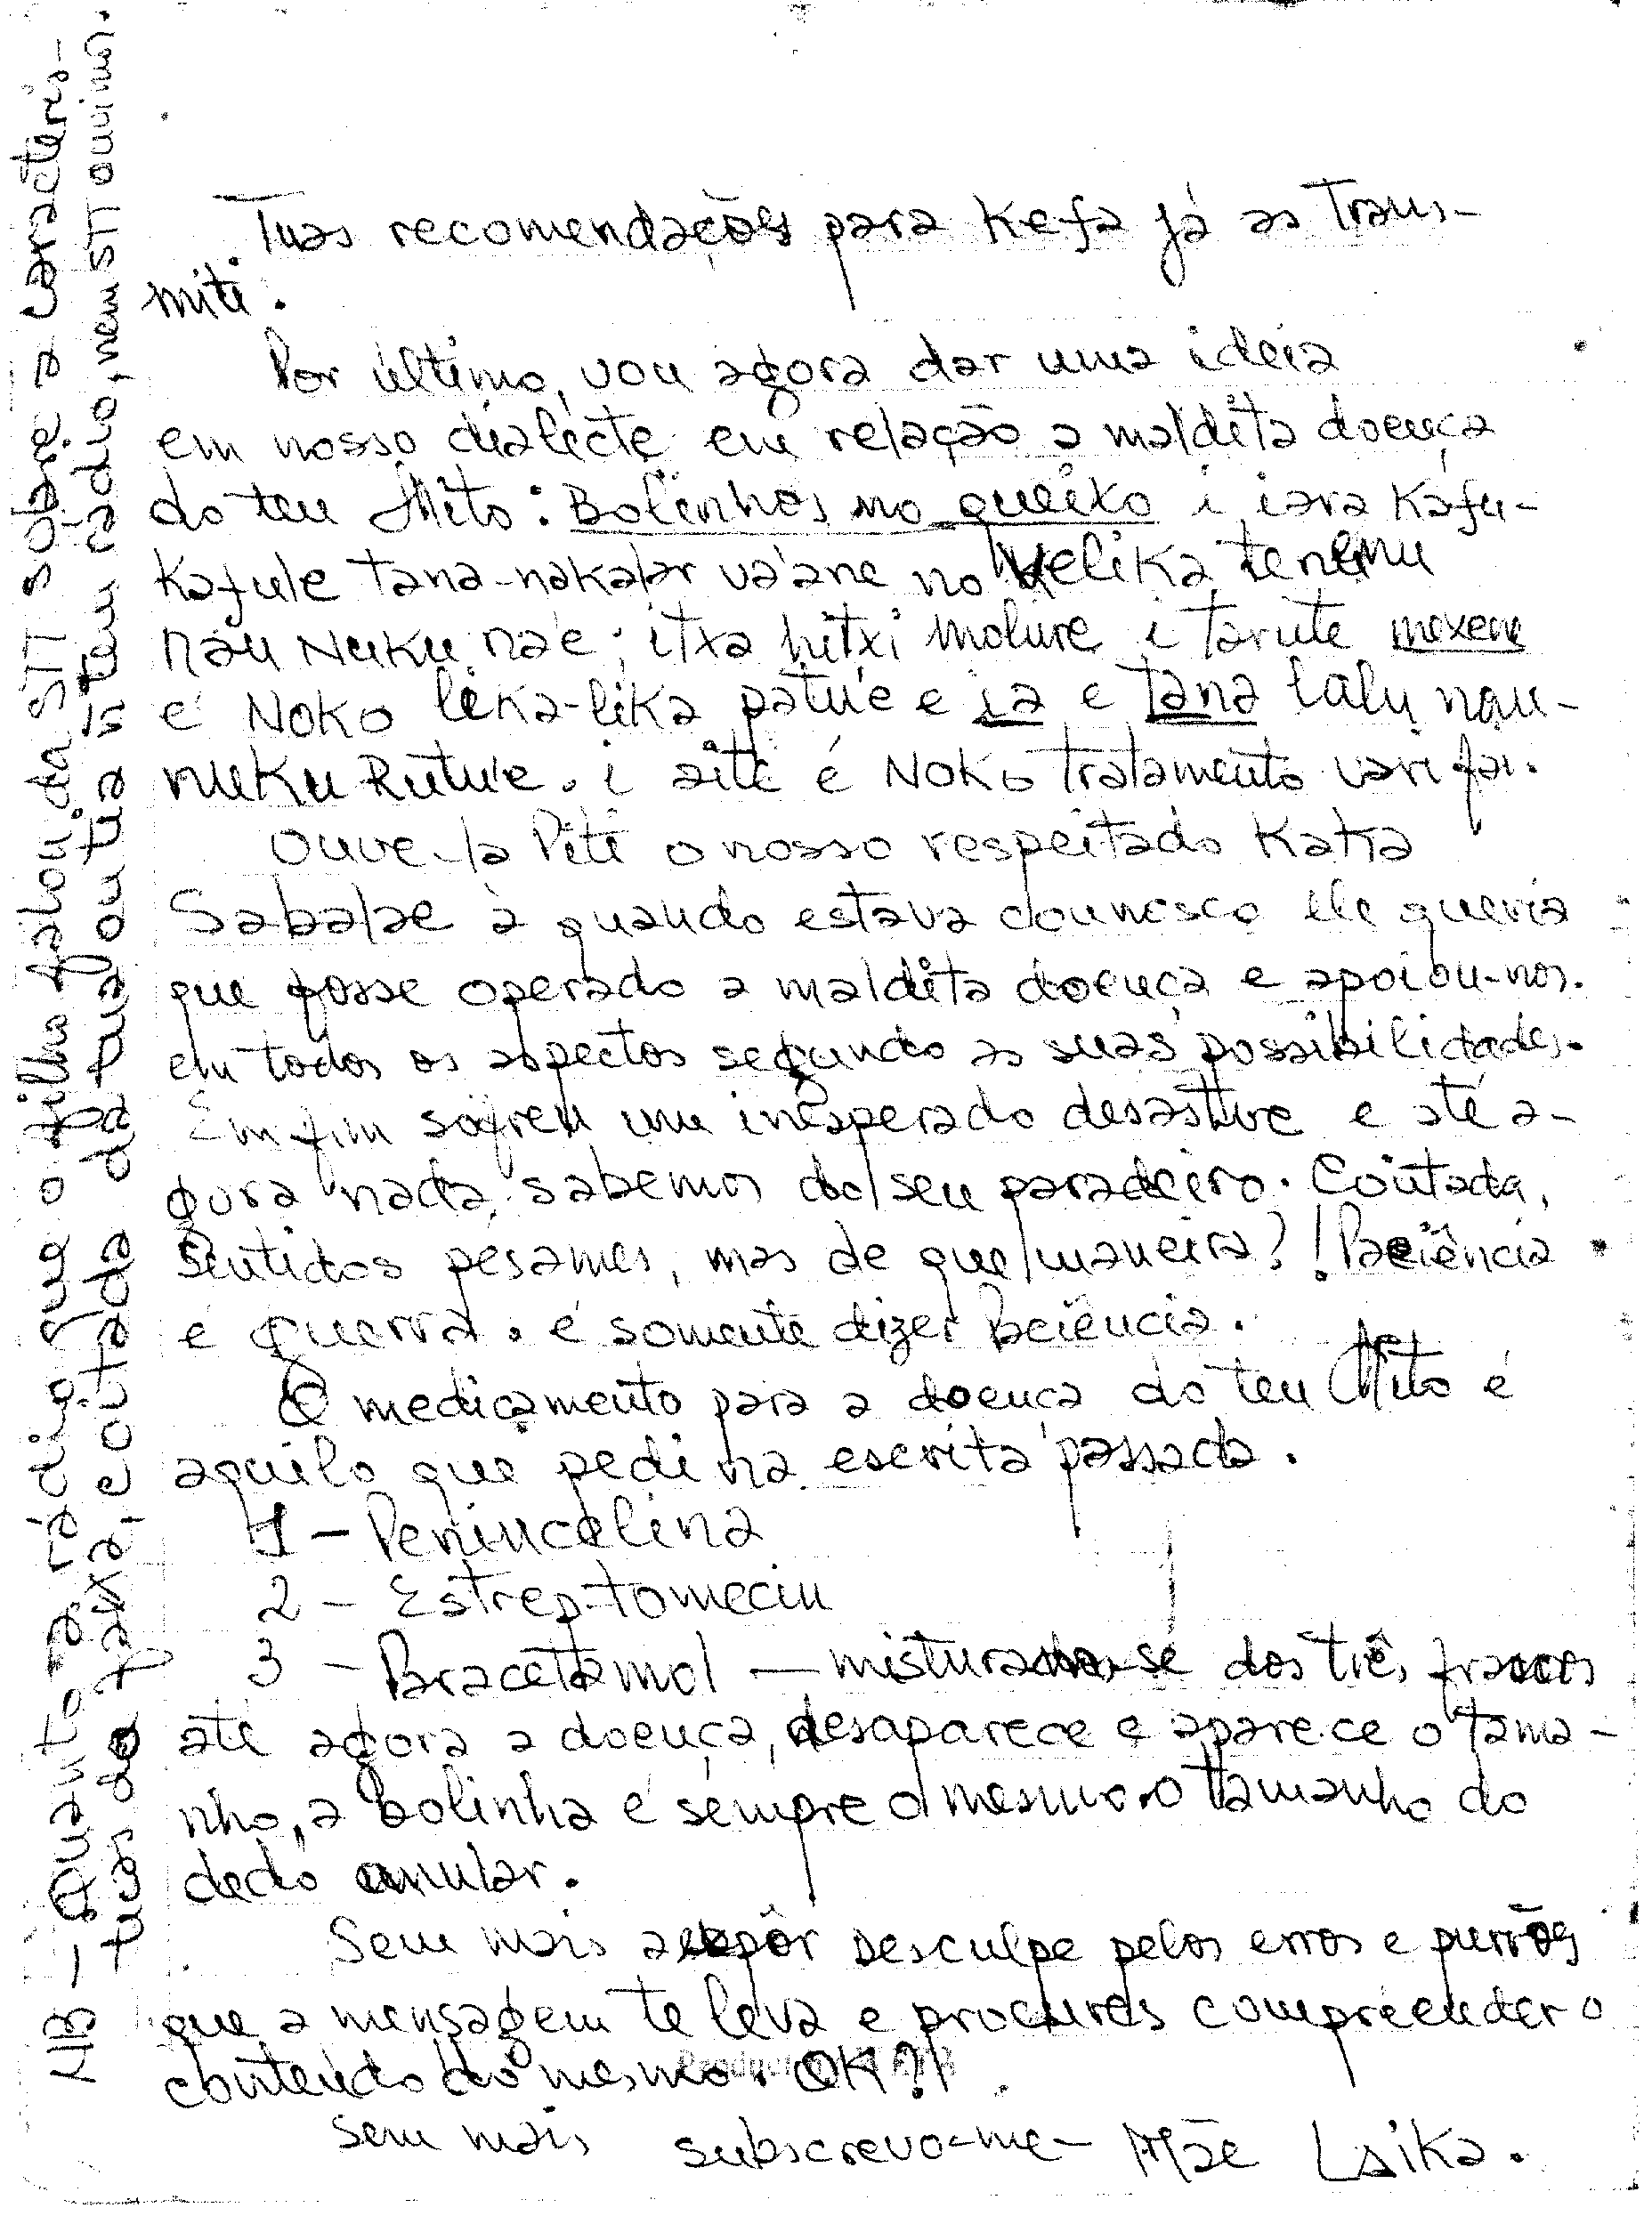 Tuas recomendações para Kefa já as trans-
miti.
Por último, vou agora dar uma ideia
em nosso dialecte em relação a maldita doença
do teu Mito: Bolinhos no queixo i iara Kafu-
Kafule tana-nakalar vá'ane no Helika, tenenu
nau Nuku na'e; itxa hitxi molure i tarute mexene
e' Noko lika-lika patu'e e ia e tana lalu nau-
nuku Rutu'e. i aite é Noko tratamento vari fai.
Ouve-la Piti o nosso respeitado Katxa
Sabalae à quando estava counosco ele queria
que fosse operado a maldita doença e apoiou-nos.
em todos os aspectos segundo as suas possibilidades.
Em fim sofreu um inesperado desastre e até a-
gora nada, sabemos do seu paradeiro. Coitada,
Sentidos pêsames, mas de que maneira?! Paciência
é guerra. é somente dizer Paciência.
O medicamento para a doença do teu Mito é
aquilo que pedi na escrita passada.
1 - Penincelina
2 - Estrep-tomecin
3 - Paracetamol — misturando-se dos três frascos
até agora a doença, desaparece e aparece o tama-
nho, a bolinha é sempre o mesmo. o tamanho do
dedo anular.
Sem mais a expôr Desculpe pelos erros e purrões
que a mensagem te leva e procures compreender o
conteúdo do mesmo. OK?!
Sem mais subscrevo-me - Mãe Laika.
NB - Quanto a rádio Sua o filho falou da STT sobre a caracterís-
ticas da faixa, coitado da Sua ou tia ñ tem rádio, nem STT ouvimos.